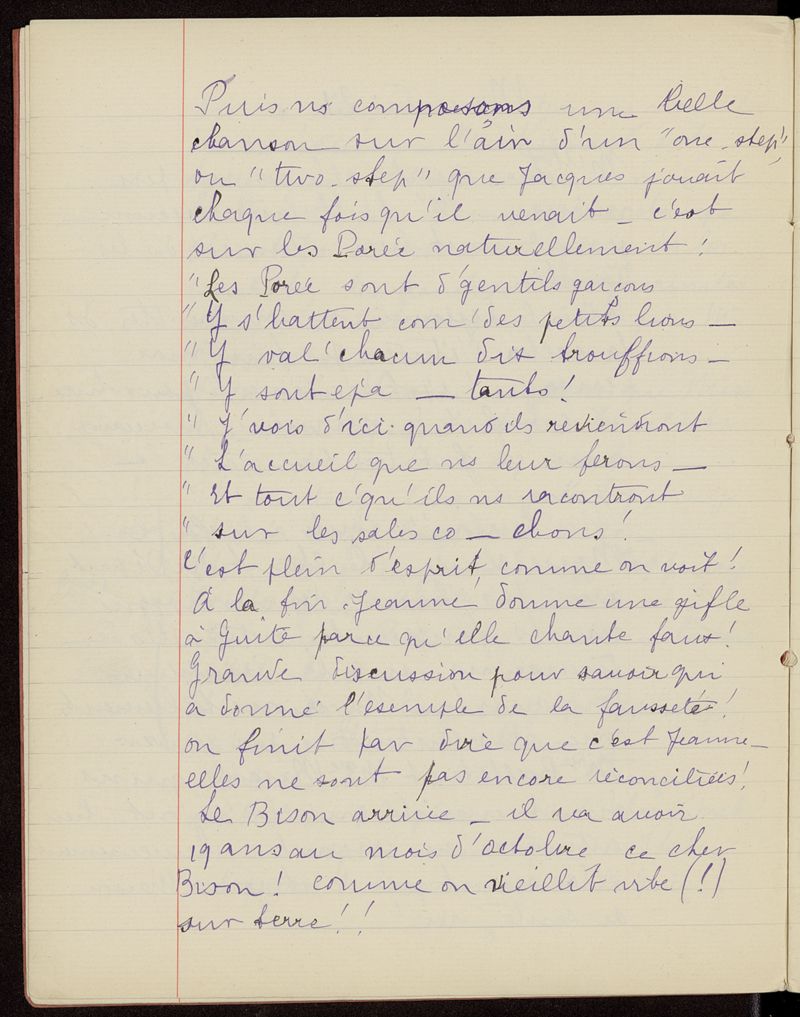 Puis ns composons une belle
chanson sur l'air d'un "one-step",
ou "two-step" que Jacques jouait
chaque fois qu'il venait - c'est
sur les Porée naturellement :
"Les Porée sont d'gentils garçons
"Y s'battent com' des petits lions -
"Y val' chacun dix trouffions -
"Y sont épa - tants !
"J'vois d'ici quand ils reviendront
"L'accueil que ns leur ferons -
"Et tout c'qu'ils ns racontront
"sur les sales co - chons !
C'est plein d'esprit, comme on voit !
A la fin Jeanne donne une gifle
à Guite parce qu'elle chante faux !
Grande discussion pour savoir qui
a donné l'exemple de la fausseté !
on finit par dire que c'est Jeanne -
elles ne sont pas encore réconciliées !
Le Bison arrive - il va avoir
19 ans au mois d'octobre ce cher
Bison ! comme on vieillit vite (!)
sur terre !!